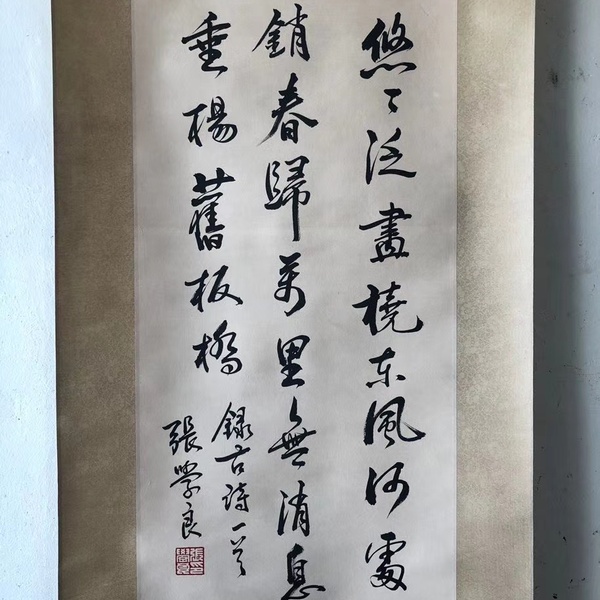 悠〻泛畫橈東風何處
銷春歸萬里無消息
垂楊舊板橋
錄古詩一首
張學良